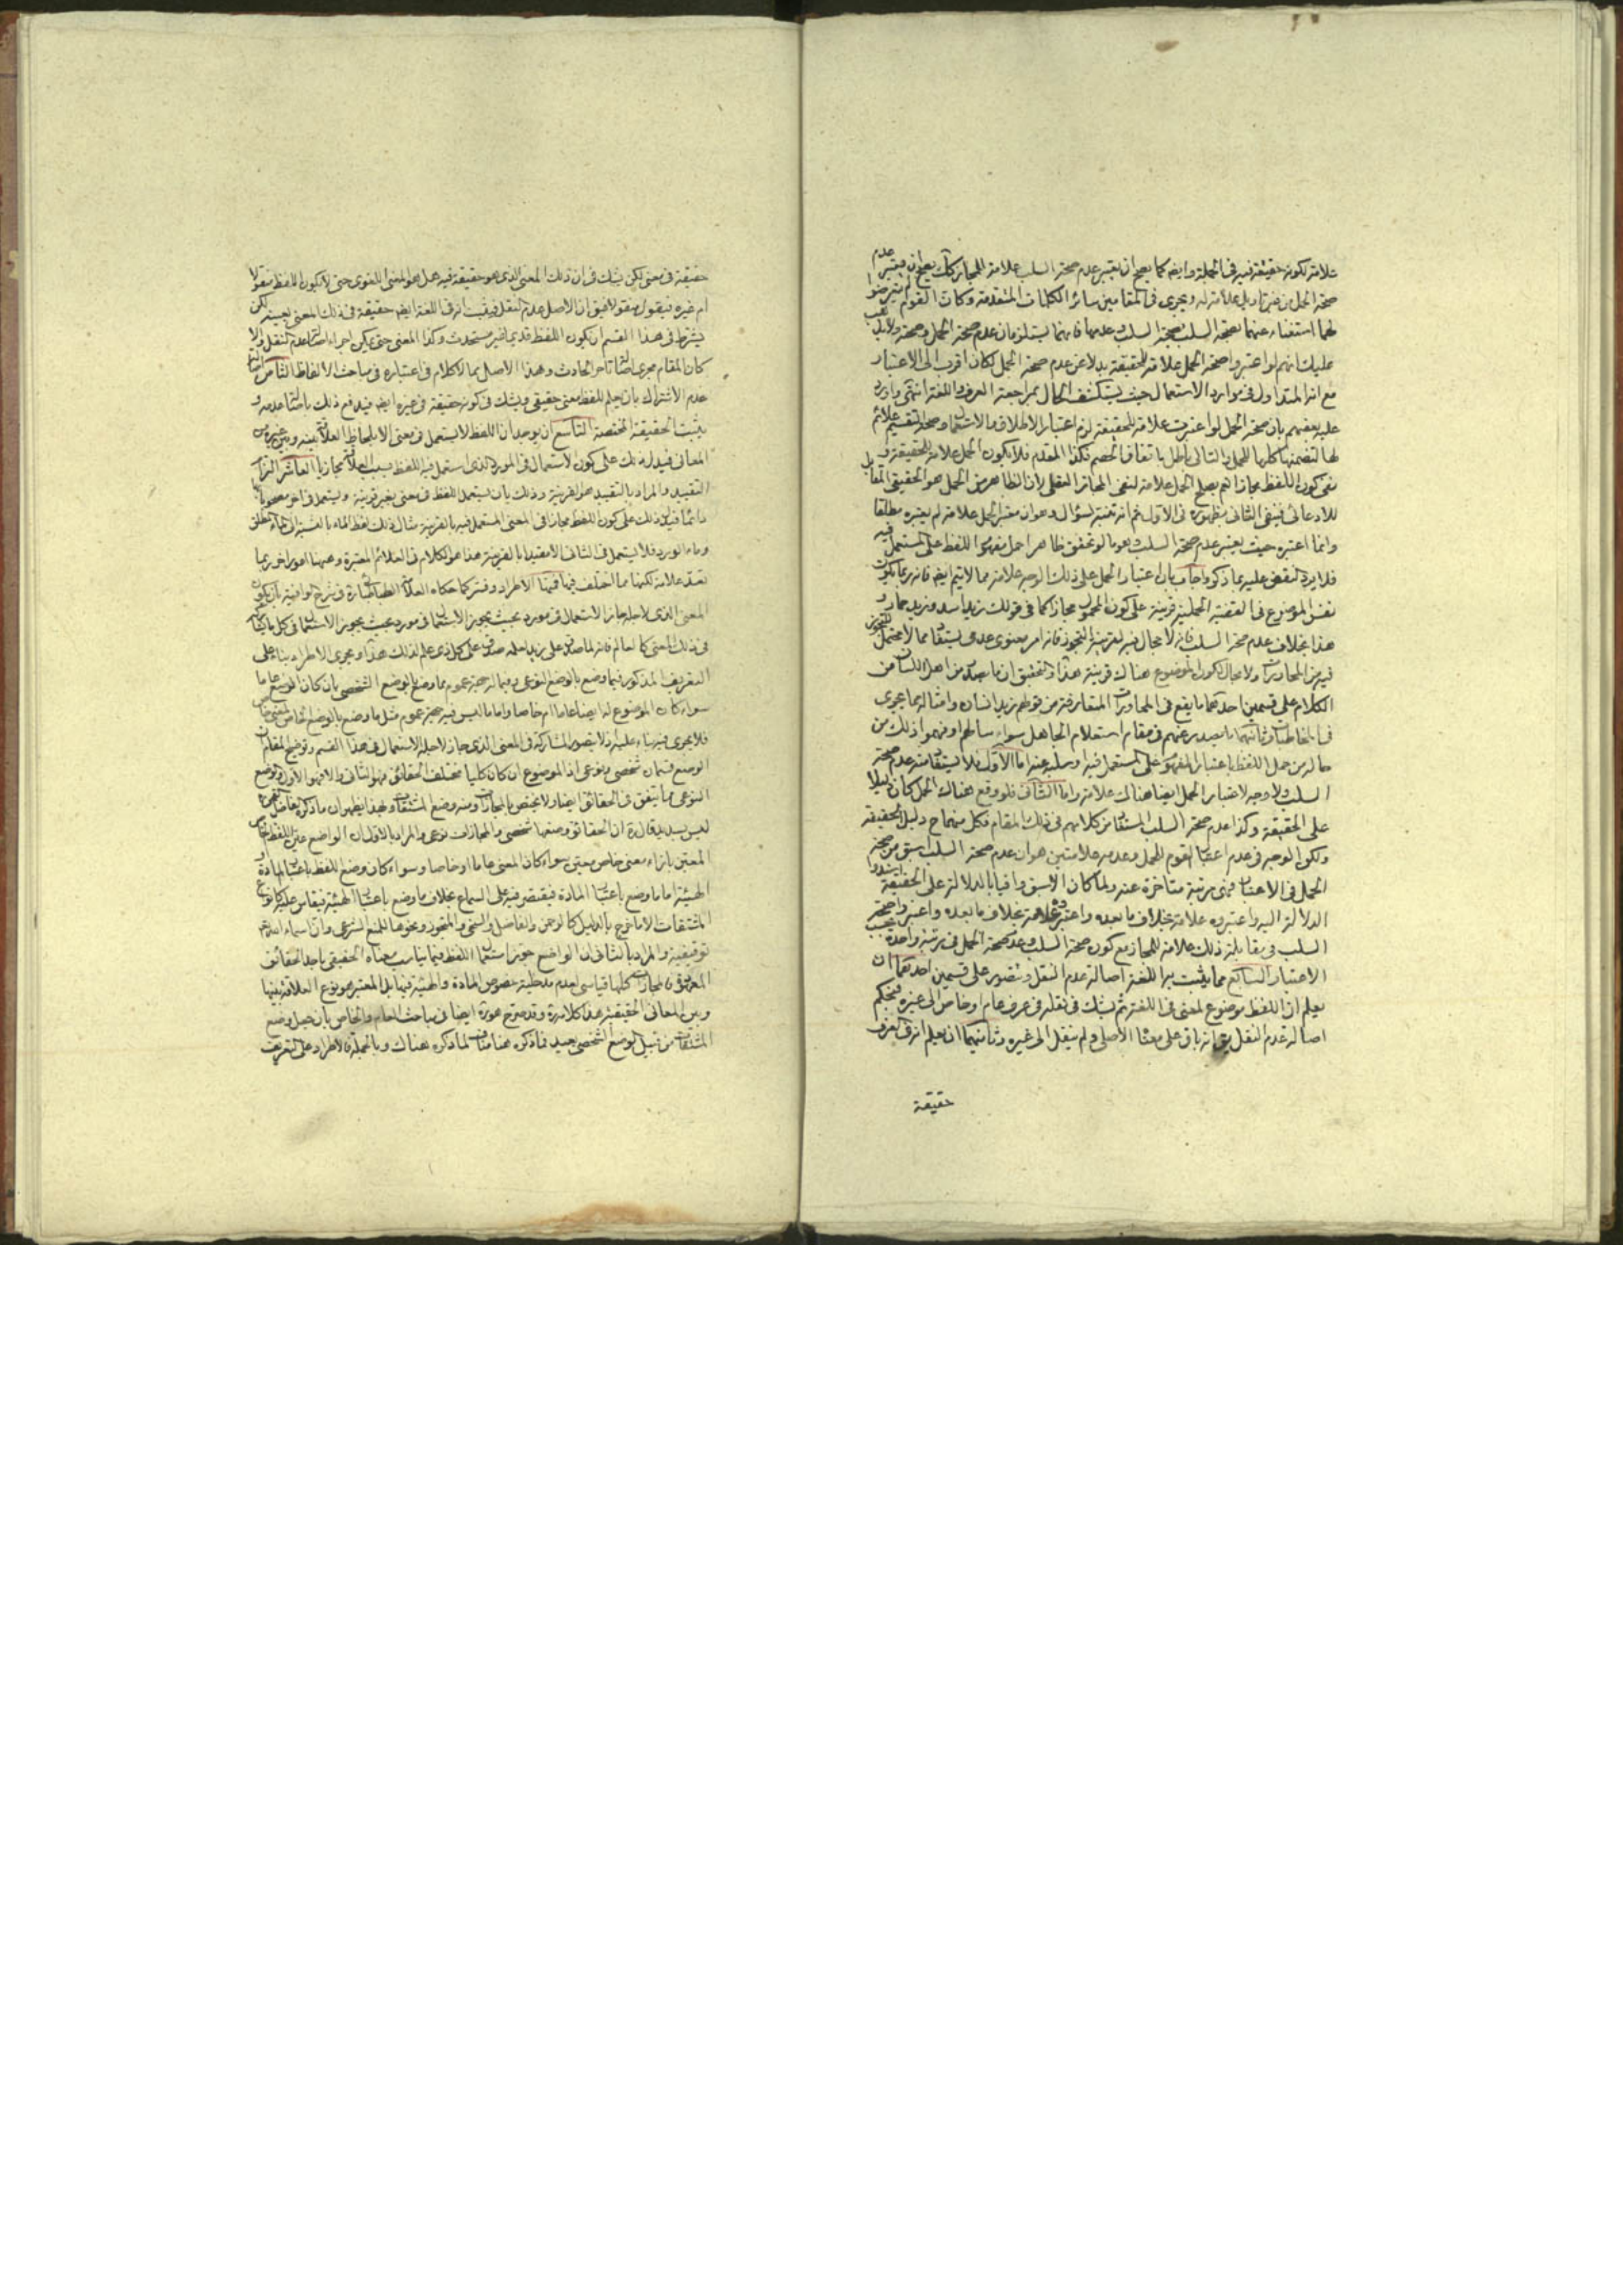 علامة لكونه حقيقة فيه في الجملة وايضا كما يصح ان يعتبر عدم صحة السلب علامة للمجاز كك يصح ان يعتبر عدم
صحة الحمل من غير تاويل علامة له ويجري في المقامين سائر الكلمات المتقدمة وكان القوم لم يتعرضوا
لهما استغناء عنهما بصحة السلب وعدمها فانهما يستلزمان عدم صحة الحمل وصحته ولا يذهب
عليك انهم لو اعتبروا صحة الحمل علامة للحقيقة بدلا عن عدم صحة الحمل لكان اقرب الى الاعتبار
مع انه المتداول في موارد الاستعمال حيث يستكشف الحال بمراجعة العرف واللغة انتهى واورد
عليه بعضهم بان صحة الحمل لو اعتبرت علامة للحقيقة لزم اعتبار الاطلاق والاستعمال وصحة التقسيم علائم
لها لتضمنها كلها للحمل والتالي باطل باتفاق الخصم فكذا المقدم فلا يكون الحمل علامة للحقيقة و
نفي كون اللفظ مجازا نعم يصلح الحمل علامة لنفي المجاز العقلي لان الظاهر من الحمل هو الحقيقي المقابل
للادعائي فينفي الثاني بظهوره في الاول ثم انه تنبه لسؤال وهو ان معتبر الحمل علامة لم يعتبره مطلقا
وانما اعتبره حيث يعتبر عدم صحة السلب وهو ما لو تحقق ظاهرا حمل مفهوم اللفظ على المستعمل فيه
فلا يرد النقض عليه بما ذكر واجاب بان اعتبار الحمل على ذلك الوجه علامة مما لا يتم ايضا فانه ربما يكون
نفس الموضوع في القضية الحملية قرينة على كون المحمول مجازا كما في قولك زيد اسد وزيد حمار و
هذا بخلاف عدم صحة السلب فانه لا مجال فيه لقرينة التجوز فانه امر معنوي عدمي يستفاد مما لا يحتمل التجوز
فيه من المحاورات ولا مجال لكون الموضوع هناك قرينة هذا والتحقيق ان ما يصدر من اهل اللسان من
الكلام على قسمين احدهما ما يقع في المحاورات المتعارفة من قولهم زيد انسان وامثاله مما يجري
في المخاطبات وثانيهما ما يصدر عنهم في مقام استعلام الجاهل سواء سالهم او فهموا ذلك من
حاله من حمل اللفظ باعتبار المفهوم على المستعمل فيه او سلبه عنه اما الاول فلا يستفاد منه عدم صحة
السلب ولا وجه لاعتبار الحمل ايضا هناك علامة واما الثاني فلو وقع هناك الحمل كان دليلا
على الحقيقة وكذا عدم صحة السلب المستفاد من كلامهم في ذلك المقام فكل منهما ح دليل الحقيقة
ولكن الوجه في عدم اعتبار القوم للحمل وعدمه علامتين هو ان عدم صحة السلب اسبق من صحة
الحمل في الاذهان فهي مرتبة متاخرة عنه ولما كان الاسبق وافيا بالدلالة على الحقيقة اسندوا
الدلالة اليه واعتبروه علامة بخلاف ما بعده واعتبروه علامة بخلاف ما بعده واعتبروا صحة
السلب في مقابلة ذلك علامة للمجاز مع كون صحة السلب وعدم صحة الحمل في مرتبة واحدة بحسب
الاعتبار السابع مما يثبت به اللغة اصالة عدم النقل ويتصور على قسمين احدهما ان
يعلم ان اللفظ موضوع لمعنى في اللغة ثم يشك في نقله في عرف عام او خاص الى غيره فيحكم
اصالة عدم النقل بانه باق على معناه الاصلي ولم ينقل الى غيره وثانيهما ان يعلم انه في العرف
حقيقة
حقيقة في معنى لكن يشك في ان ذلك المعنى الذي هو حقيقة فيه هل هو المعنى اللغوي حتى لا يكون اللفظ منقولا
ام غيره فيقول منقولا فيق ان الاصل عدم النقل فيثبت انه في اللغة ايضا حقيقة في ذلك المعنى بعينه لكن
يشترط في هذا القسم ان يكون اللفظ قديما غير مستحدث وكذا المعنى حتى يمكن اجراء اصالة عدم النقل والا
كان المقام مجرى اصالة تاخر الحادث وهذا الاصل مما لا كلام في اعتباره في مباحث الالفاظ الثامن اصالة
عدم الاشتراك بان يعلم للفظ معنى حقيقي ويشك في كونه حقيقة في غيره ايضا فيدفع ذلك باصالة عدمه و
يثبت الحقيقة المختصة التاسع ان يوجد ان اللفظ لا يستعمل في معنى الا بلحاظ العلاقة بينه وبين غيره من
المعاني فيدل ذلك على كون الاستعمال في المورد الذي استعمل فيه اللفظ بسبب العلاقة مجازيا العاشر التزام
التقييد والمراد بالتقييد هو القرينة وذلك بان يستعمل اللفظ في معنى بغير قرينة ويستعمل في اخر مصحوبا بها
دائما فيدل ذلك على كون اللفظ مجازا في المعنى المستعمل فيه بالقرينة مثال ذلك لفظ الماء بالنسبة الى الماء المطلق
وماء الورد فلا يستعمل في الثاني الا مقيدا بالقرينة هذا هو الكلام في العلائم المعتبرة وهيهنا امور اخر ربما
تعد علامة لكنها مما اختلف فيها فمنها الاطراد وفسر كما حكاه العلامة الطباطبائي ره في شرح الوافية بان يكون
المعنى الذي لاجله جاز الاستعمال في مورد بحيث يجوز الاستعمال في مورد بحيث يجوز الاستعمال في كل ما يشاركه
في ذلك المعنى كالعالم فانه لما صدق على زيد لعلمه صدق على كل ذي علم لذلك هذا ويجري الاطراد بناء على
التعريف المذكور فيما وضع بالوضع النوعي وفيما له جهة عموم مما وضع بالوضع الشخصي بان كان الوضع عاما
سواء كان الموضوع له ايضا عاما ام خاصا واما ما ليس فيه جهة عموم مثل ما وضع بالوضع الخاص لمعنى خاص
فلا يجري فيه بناء عليه فلا يتصور المشاركة في المعنى الذي جاز لاجله الاستعمال في هذا القسم وتوضيح المقام ان
الوضع قسمان شخصي ونوعي اذ الموضوع ان كان كليا مختلف الحقائق فهو الثاني والا فهو الاول والوضع
النوعي مما يتفق في الحقائق ايضا ولا يختص بالمجازات ومنه وضع المشتقات وبهذا يظهر ان ما ذكره الفاضل
ليس بسديد قال ره ان الحقائق وضعها شخصي والمجازات نوعي والمراد بالاول ان الواضع عين اللفظ الخاص
المعين بازاء معنى خاص معين سواء كان المعنى عاما او خاصا وسواء كان وضع اللفظ باعتبار المادة او
الهيئة اما ما وضع باعتبار المادة فيقتصر فيه على السماع بخلاف ما وضع باعتبار الهيئة فيقاس عليه كانواع
المشتقات الا ما خرج بالدليل كالرحمن والفاضل والسخي والمتجوز ونحوها للمنع الشرعي وان اسماء الله تعالى
توقيفية والمراد بالثاني ان الواضع جوز استعمال اللفظ فيما يناسب معناه الحقيقي باحد العلائق
المعهودة فالمجازات كلها قياسي لعدم مدخلية خصوص المادة والهيئة فيها بل المعتبر هو نوع العلاقة بينها
وبين المعاني الحقيقية هذا كلامه ره وقد صرح هو ره ايضا في مباحث العام والخاص بان جعل وضع
المشتقات من قبيل الوضع الشخصي بعيد فما ذكره هنا مناف لما ذكره هناك وبالجملة فالاطراد على التعريف